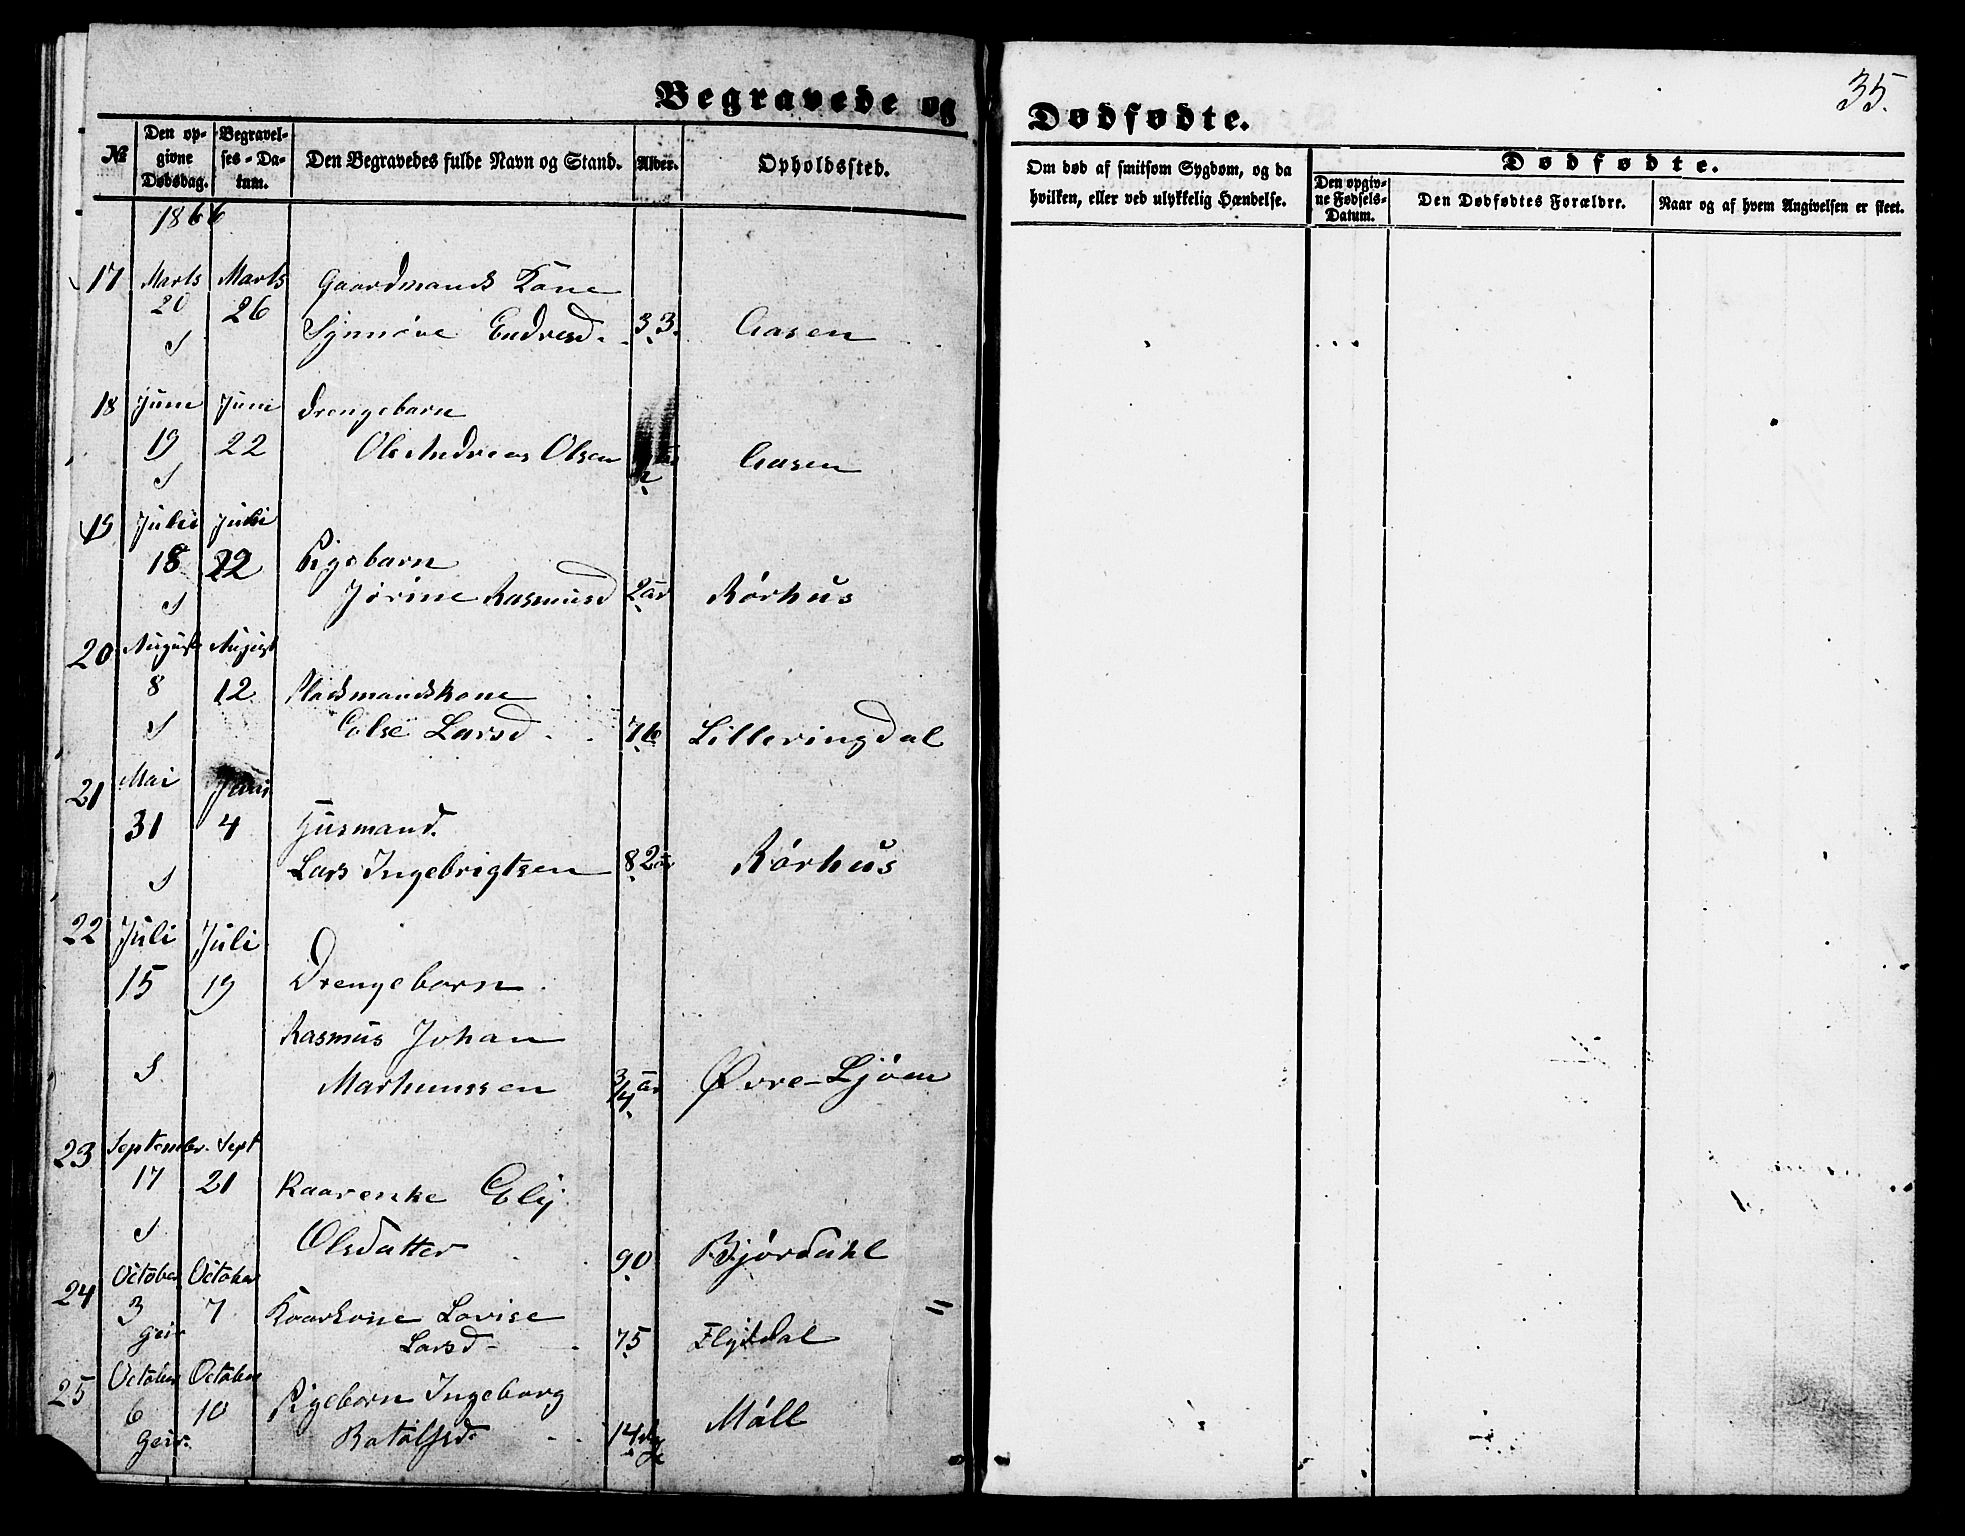 Begravede og
Dødfødte.
35.
№
Den op-
givne
Dødsdag.
Begravel-
ses-Da-
tum.
Den Begravedes fulde Navn og Stand.
Alder.
Opholdssted.
Om død af smitsom Sygdom, og da
hvilken, eller ved ulykkelig Hændelse.
Dødfødte.
Den opgiv-
ne Fødsels-
Datum.
Den Dødfødtes Forældre.
Naar og af hvem Angivelsen er skeet.
1866
17 Marts Marts Gaardmands Kone
20 26
S Synnøve Endresd. 33. Aasen
18 Juni Juni Drengebarn
19 22 Ole Andreas Olsen Aasen
S
19 Juli Juli
18 22 Pigebarn
S Jørine Rasmusd 2 år Rørhus
20 August August
8 12 Pladsmandskone
S Else Larsd. 76 Lilleringdal
21 Mai Juni
31 4 Husmand.
S Lars Ingebrigtsen 82 år Rørhus
22 Juli Juli
15 19 Drengebarn
Rasmus Johan
S Marhunssen 3/4 år Øvre-Ljøen
23 September. Sept
17 21 Kaarenke Eli
S Olsdatter 90 Bjørdahl
24 October October
3 7 Kaarkone Lovise
Geir Larsd 75 Flydal
25 October October
6 10 Pigebarn Ingeborg
Geir. Batolfsd. 14 Dge Måll